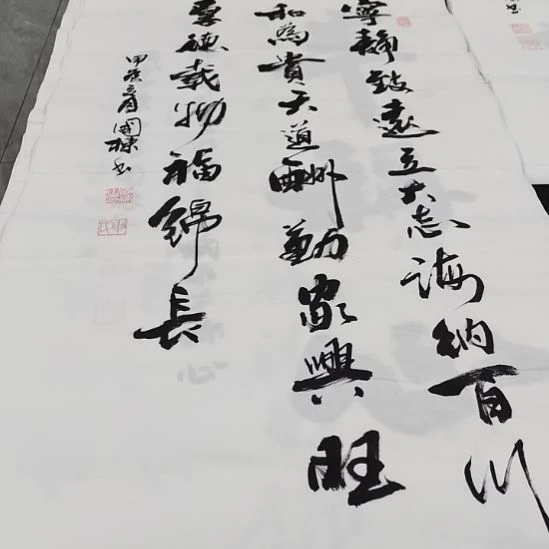 寧靜致遠立大志海納百川
和為貴天道酬勤家興旺
厚德載物福錦長
甲辰之夏國棟書